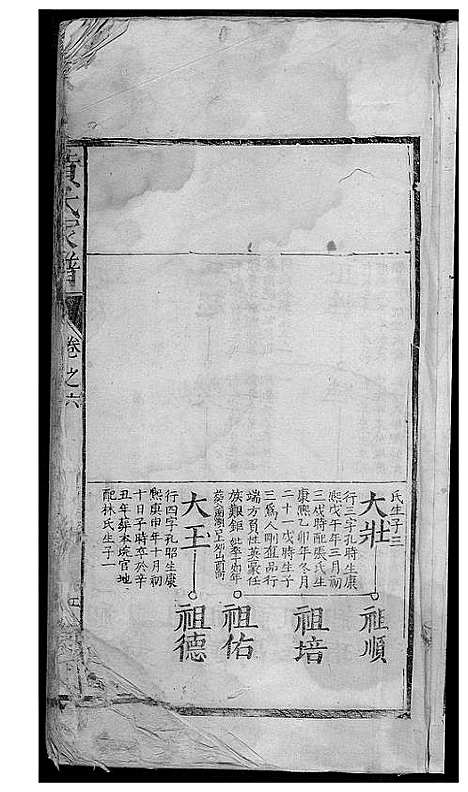 氏生子三
大壯
行三字孔時生康
熙戊午年三月初
三戌時配張氏生
康熙乙卯年冬月
二十一戌時生子
三爲人剛雅品行
端方賢性英豪任
族艱鉅
祖順
祖培
祖佑
大玉
行四字孔昭生康
熙庚申年十月初
十日子時卒於辛
丑年葬本境官地
配林氏生子一
祖德
氏家譜
卷之六